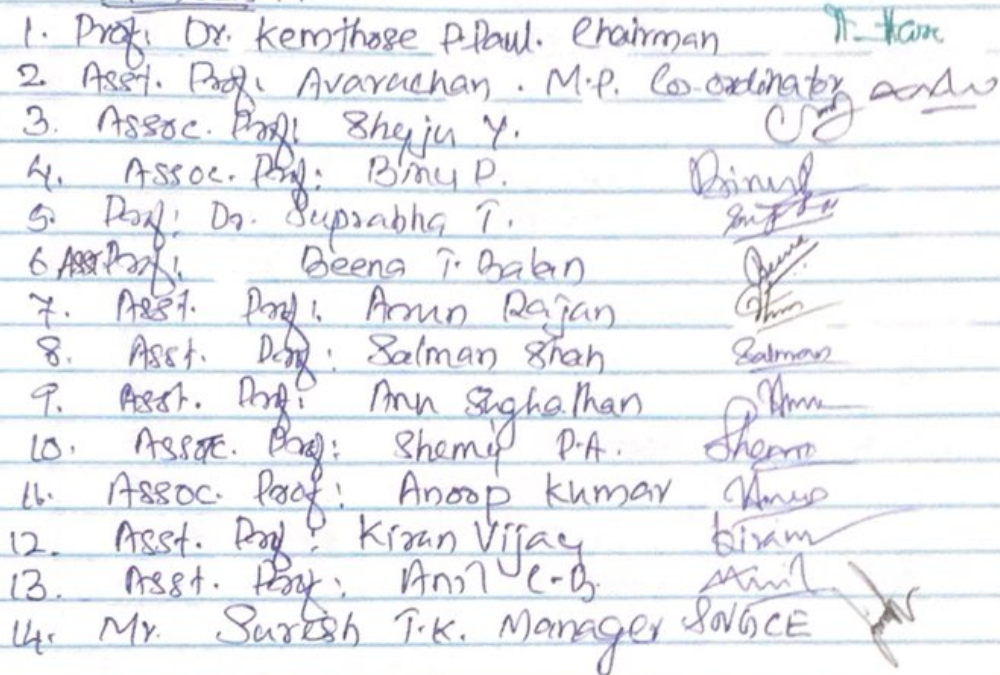 1. Prof: Dr. Kemthose P. Paul. Chairman
2. Asst. Prof: Avarachan. M.P. Co-ordinator
3. Assoc. Prof: Shyju Y.
4. Assoc. Prof: Binu P. Binu P
5. Prof: Dr. Suprabha T.
6 Asst Prof: Beena T. Balan
7. Asst. Prof: Arun Rajan
8. Asst. Prof: Salman Shah Salman
9. Asst. Prof: Ann
10. Assoc. Prof: P.A.
11. Assoc. Prof: Anoop Kumar
12. Asst. Prof: Kiran Vijay Kiran
13. Asst. Prof: Anil C.B. Anil
14. Mr. Suresh T.K. Manager SNGCE